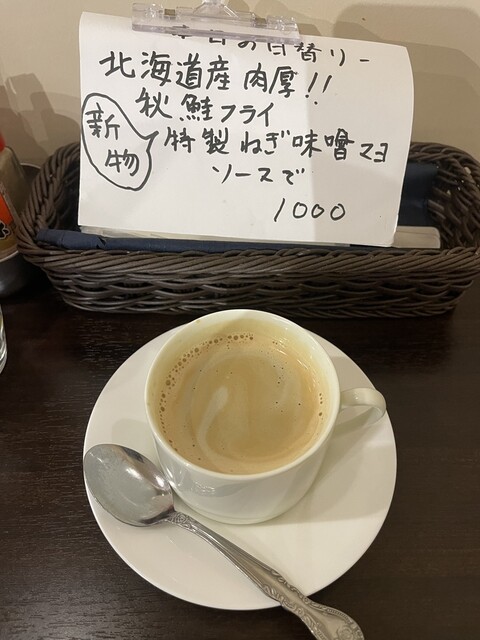 本日の日替り-
北海道産 肉厚!!
秋鮭フライ
新物
特製ねぎ味噌マヨ
ソースで
1000